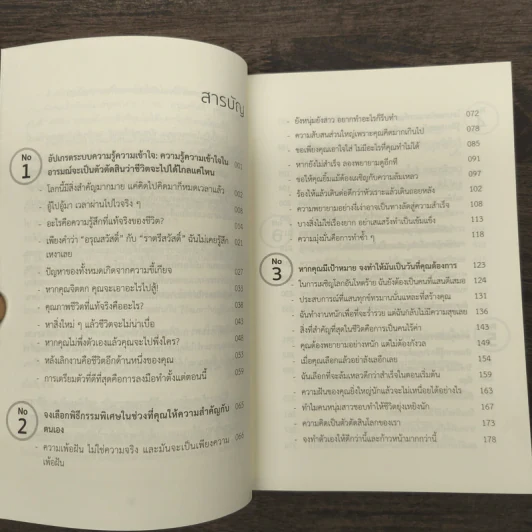 สารบัญ
No 1
อัปเกรดระบบความรู้ความเข้าใจ: ความรู้ความเข้าใจใน
อารมณ์จะเป็นตัวตัดสินว่าชีวิตจะไปได้ไกลแค่ไหน
- โลกนี้มีสิ่งสำคัญมากมาย แค่คิดไปคิดมาก็หมดเวลาแล้ว
- อู้ไปอู้มา เวลาผ่านไปไวจริง ๆ
- อะไรคือความรู้สึกที่แท้จริงของชีวิต? 014
- เพียงคำว่า "อรุณสวัสดิ์" กับ "ราตรีสวัสดิ์" ฉันไม่เคยรู้สึก 021
เหงาเลย
- ปัญหาของทั้งหมดเกิดจากความขี้เกียจ 027
- หากคุณจิตตก คุณจะเอาอะไรไปสู้! 032
- คุณภาพชีวิตที่แท้จริงคืออะไร? 037
- หาสิ่งใหม่ ๆ แล้วชีวิตจะไม่น่าเบื่อ
- หากคุณไม่พึ่งตัวเองแล้วคุณจะไปพึ่งใคร?
- หลังเลิกงานคือชีวิตอีกด้านหนึ่งของคุณ
- การเตรียมตัวที่ดีที่สุดคือการลงมือทำตั้งแต่ตอนนี้ 059
No 2
จงเลือกพิธีกรรมพิเศษในช่วงที่คุณให้ความสำคัญกับ
ตนเอง
- ความเพ้อฝัน ไม่ใช่ความจริง และมันจะเป็นเพียงความ
เพ้อฝัน
- ยังหนุ่มยังสาว อยากทำอะไรก็รีบทำ 072
- ความสับสนส่วนใหญ่เพราะคุณคิดมากเกินไป 078
- ขอเพียงคุณเอาใจใส่ ไม่มีอะไรที่คุณทำไม่ได้ 085
- หากยังไม่สำเร็จ ลองพยายามดูอีกที 091
- ขอให้คุณยิ้มแม้ต้องเผชิญกับความล้มเหลว 097
- ร้องไห้แล้วเดินต่อดีกว่าหัวเราะแล้วเดินถอยหลัง 102
- ความพยายามอย่างโง่เง่าอาจเป็นทางลัดสู่ความสำเร็จ 108
- บางสิ่งไม่ใช่เรื่องยาก อย่าเสแสร้งทำเป็นเข้มแข็ง 113
- ความมุ่งมั่นคือการทำซ้ำ ๆ 118
No 3
หากคุณมีเป้าหมาย จงทำให้มันเป็นวันที่คุณต้องการ 123
- ในการเผชิญโลกอันโหดร้าย ฉันยังต้องเป็นคนที่แสนดีเสมอ 124
- ประสบการณ์ที่แสนทุกข์ทรมานนั่นแหละที่สร้างคุณ 131
- ฉันทำงานหนักเพื่อที่จะร่ำรวย แต่ฉันกลับไม่มีความสุขเลย 137
- สิ่งที่สำคัญที่สุดในชีวิตคือการเป็นคนไร้ค่า 143
- คุณต้องพยายามอย่างหนัก แต่ไม่ต้องกังวล 149
- เมื่อคุณเลือกแล้วอย่าลังเลอีกเลย 154
- ฉันเลือกที่จะล้มเหลวดีกว่าสำเร็จในตอนเริ่มต้น 160
- ความฝันของคุณยิ่งใหญ่นักแล้วจะไม่เหนื่อยได้อย่างไร 163
- ทำไมคนหนุ่มสาวชอบทำให้ชีวิตยุ่งเหยิงนัก 167
- ความคิดเป็นตัวตัดสินโลกของเรา 173
- จงทำตัวเองให้ดีกว่านี้และก้าวหน้ามากกว่านี้ 178